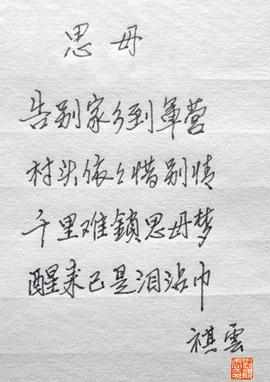 思母
告别家乡到軍营
村头依依惜别情
千里难鎖思母梦
醒来已是泪沾巾
祺雲